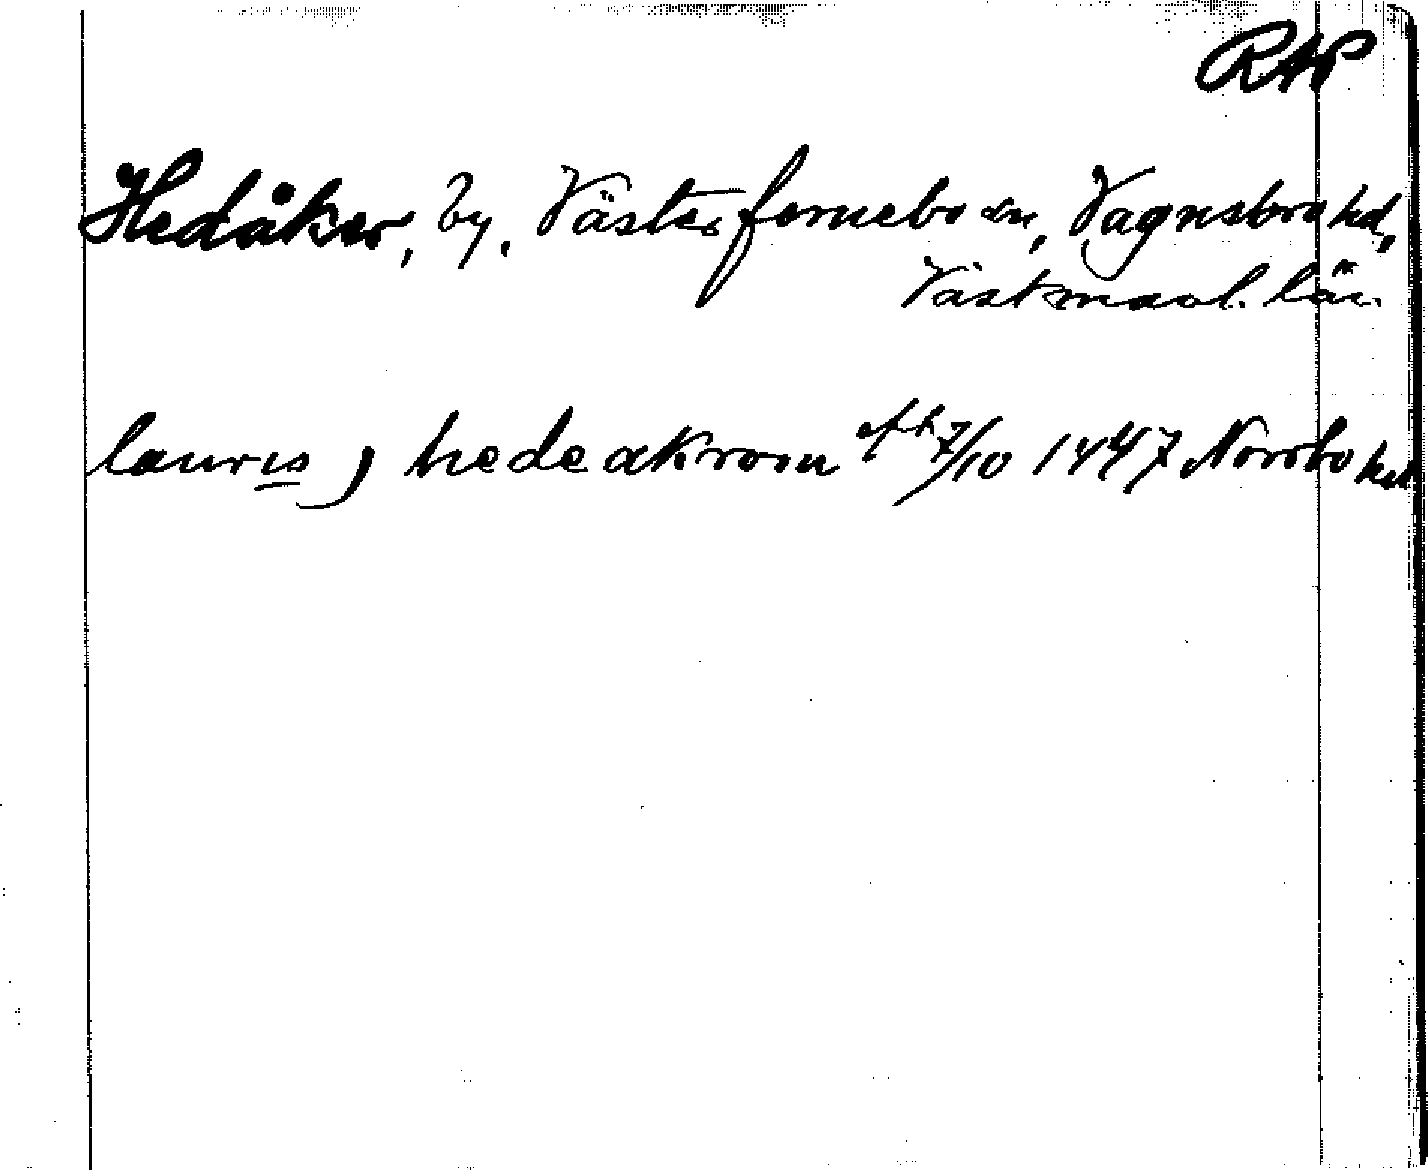 RAP
Hedåker, by, Västerfernebo sn, Vagnsbro hd,
Västmanl. län
lauris j hedeakrom afh 7/10 1447 Norrbo hd